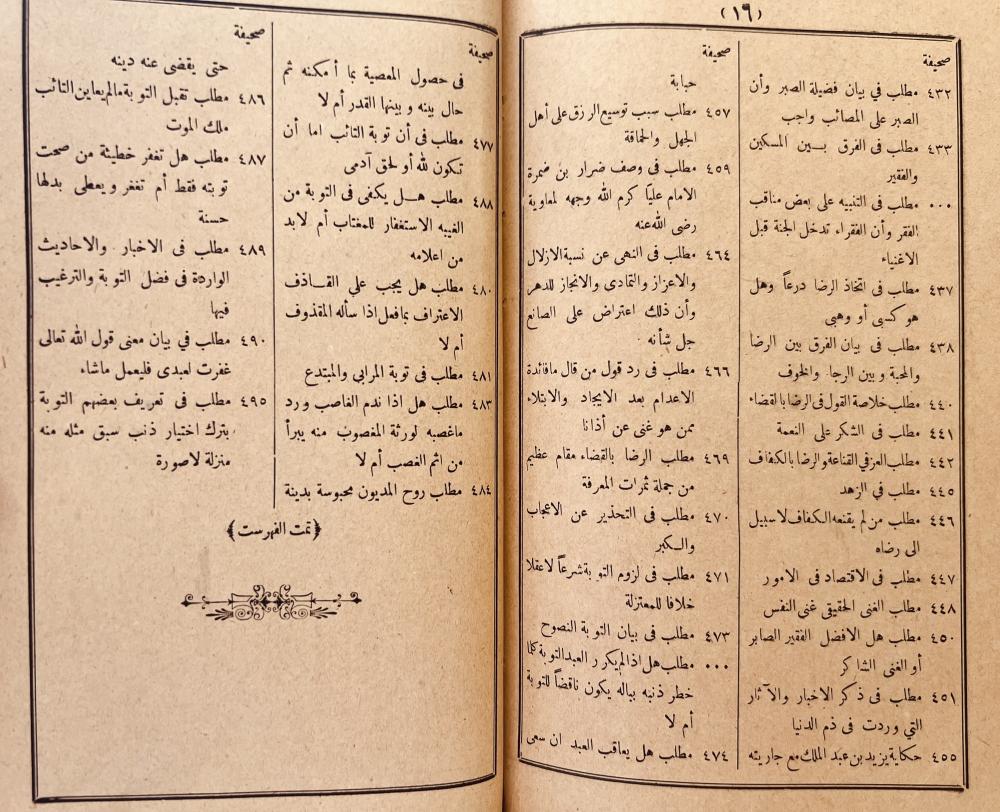 (١٦)
صحيفة
٤٣٢ مطلب في بيان فضيلة الصبر وأن
الصبر على المصائب واجب
٤٣٣ مطلب فى الفرق بين المسكين
والفقير
٠٠٠ مطلب فى التنبيه على بعض مناقب
الفقر وأن الفقراء تدخل الجنة قبل
الاغنياء
٤٣٧ مطلب فى اتخاذ الرضا درعاً وهل
هو كسبى أو وهبى
٤٣٨ مطلب فى بيان الفرق بين الرضا
والمحبة وبين الرجاء والخوف
٤٤٠ مطلب خلاصة القول فى الرضا بالقضاء
٤٤١ مطلب فى الشكر على النعمة
٤٤٢ مطلب العز فى القناعة والرضا بالكفاف
٤٤٥ مطلب فى الزهد
٤٤٦ مطلب من لم يقنعه الكفاف لا سبيل
الى رضاه
٤٤٧ مطلب فى الاقتصاد فى الامور
٤٤٨ مطلب الغنى الحقيقى غنى النفس
٤٥٠ مطلب هل الافضل الفقير الصابر
أو الغنى الشاكر
٤٥١ مطلب فى ذكر الاخبار والآثار
التي وردت فى ذم الدنيا
٤٥٥ حكاية يزيد بن عبد الملك مع جاريته
صحيفة
حبابة
٤٥٧ مطلب سبب توسيع الرزق على أهل
الجهل والحماقة
٤٥٩ مطلب فى وصف ضرار بن ضمرة
الامام علياً كرم الله وجهه لمعاوية
رضى الله عنه
٤٦٤ مطلب فى النهى عن نسبة الازلال
والاعزاز والتمادى والانجاز للدهر
وأن ذلك اعتراض على الصانع
جل شأنه
٤٦٦ مطلب فى رد قول من قال ما فائدة
الاعدام بعد الايجاد والابتلاء
ممن هو غنى عن أذانا
٤٦٩ مطلب الرضا بالقضاء مقام عظيم
من جملة ثمرات المعرفة
٤٧٠ مطلب فى التحذير عن الاعجاب
والكبر
٤٧١ مطلب فى لزوم التوبة شرعاً لا عقلا
خلافا للمعتزلة
٤٧٣ مطلب فى بيان التوبة النصوح
٠٠٠ مطلب هل اذا لم يكرر العبد التوبة كلما
خطر ذنبه بباله يكون ناقضاً للتوبة
أم لا
٤٧٤ مطلب هل يعاقب العبد ان سعى
صحيفة
فى حصول المعصية بما أمكنه ثم
حال بينه وبينها القدر أم لا
٤٧٧ مطلب فى أن توبة التائب اما أن
تكون لله أو لحق آدمى
٤٨٨ مطلب هل يكفى فى التوبة من
الغيبه الاستغفار للمغتاب أم لابد
من اعلامه
٤٨٠ مطلب هل يجب علي القاذف
الاعتراف بما فعل اذا سأله المقذوف
أم لا
٤٨١ مطلب فى توبة المرابى والمبتدع
٤٨٣ مطلب هل اذا ندم الغاصب ورد
ما غصبه لورثة المغصوب منه يبرأ
من اثم الغصب أم لا
٤٨٤ مطلب روح المديون محبوسة بدينة
صحيفة
حتى يقضى عنه دينه
٤٨٦ مطلب تقبل التوبة مالم يعاين التائب
ملك الموت
٤٨٧ مطلب هل تغفر خطيئة من صحت
توبته فقط أم تغفر ويعطى بدلها
حسنة
٤٨٩ مطلب فى الاخبار والاحاديث
الواردة فى فضل التوبة والترغيب
فيها
٤٩٠ مطلب في بيان معنى قول الله تعالى
غفرت لعبدى فليعمل ماشاء
٤٩٥ مطلب فى تعريف بعضهم التوبة
بترك اختيار ذنب سبق مثله منه
منزلة لاصورة
﴿تمت الفهرست﴾